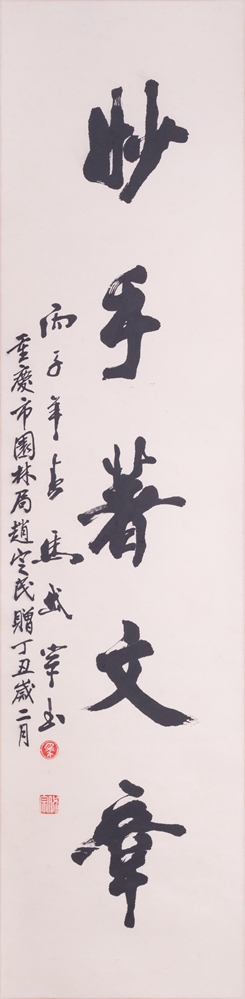 妙手著文章
丙子年春馬武崇書
重慶市園林局趙定民贈丁丑歲二月